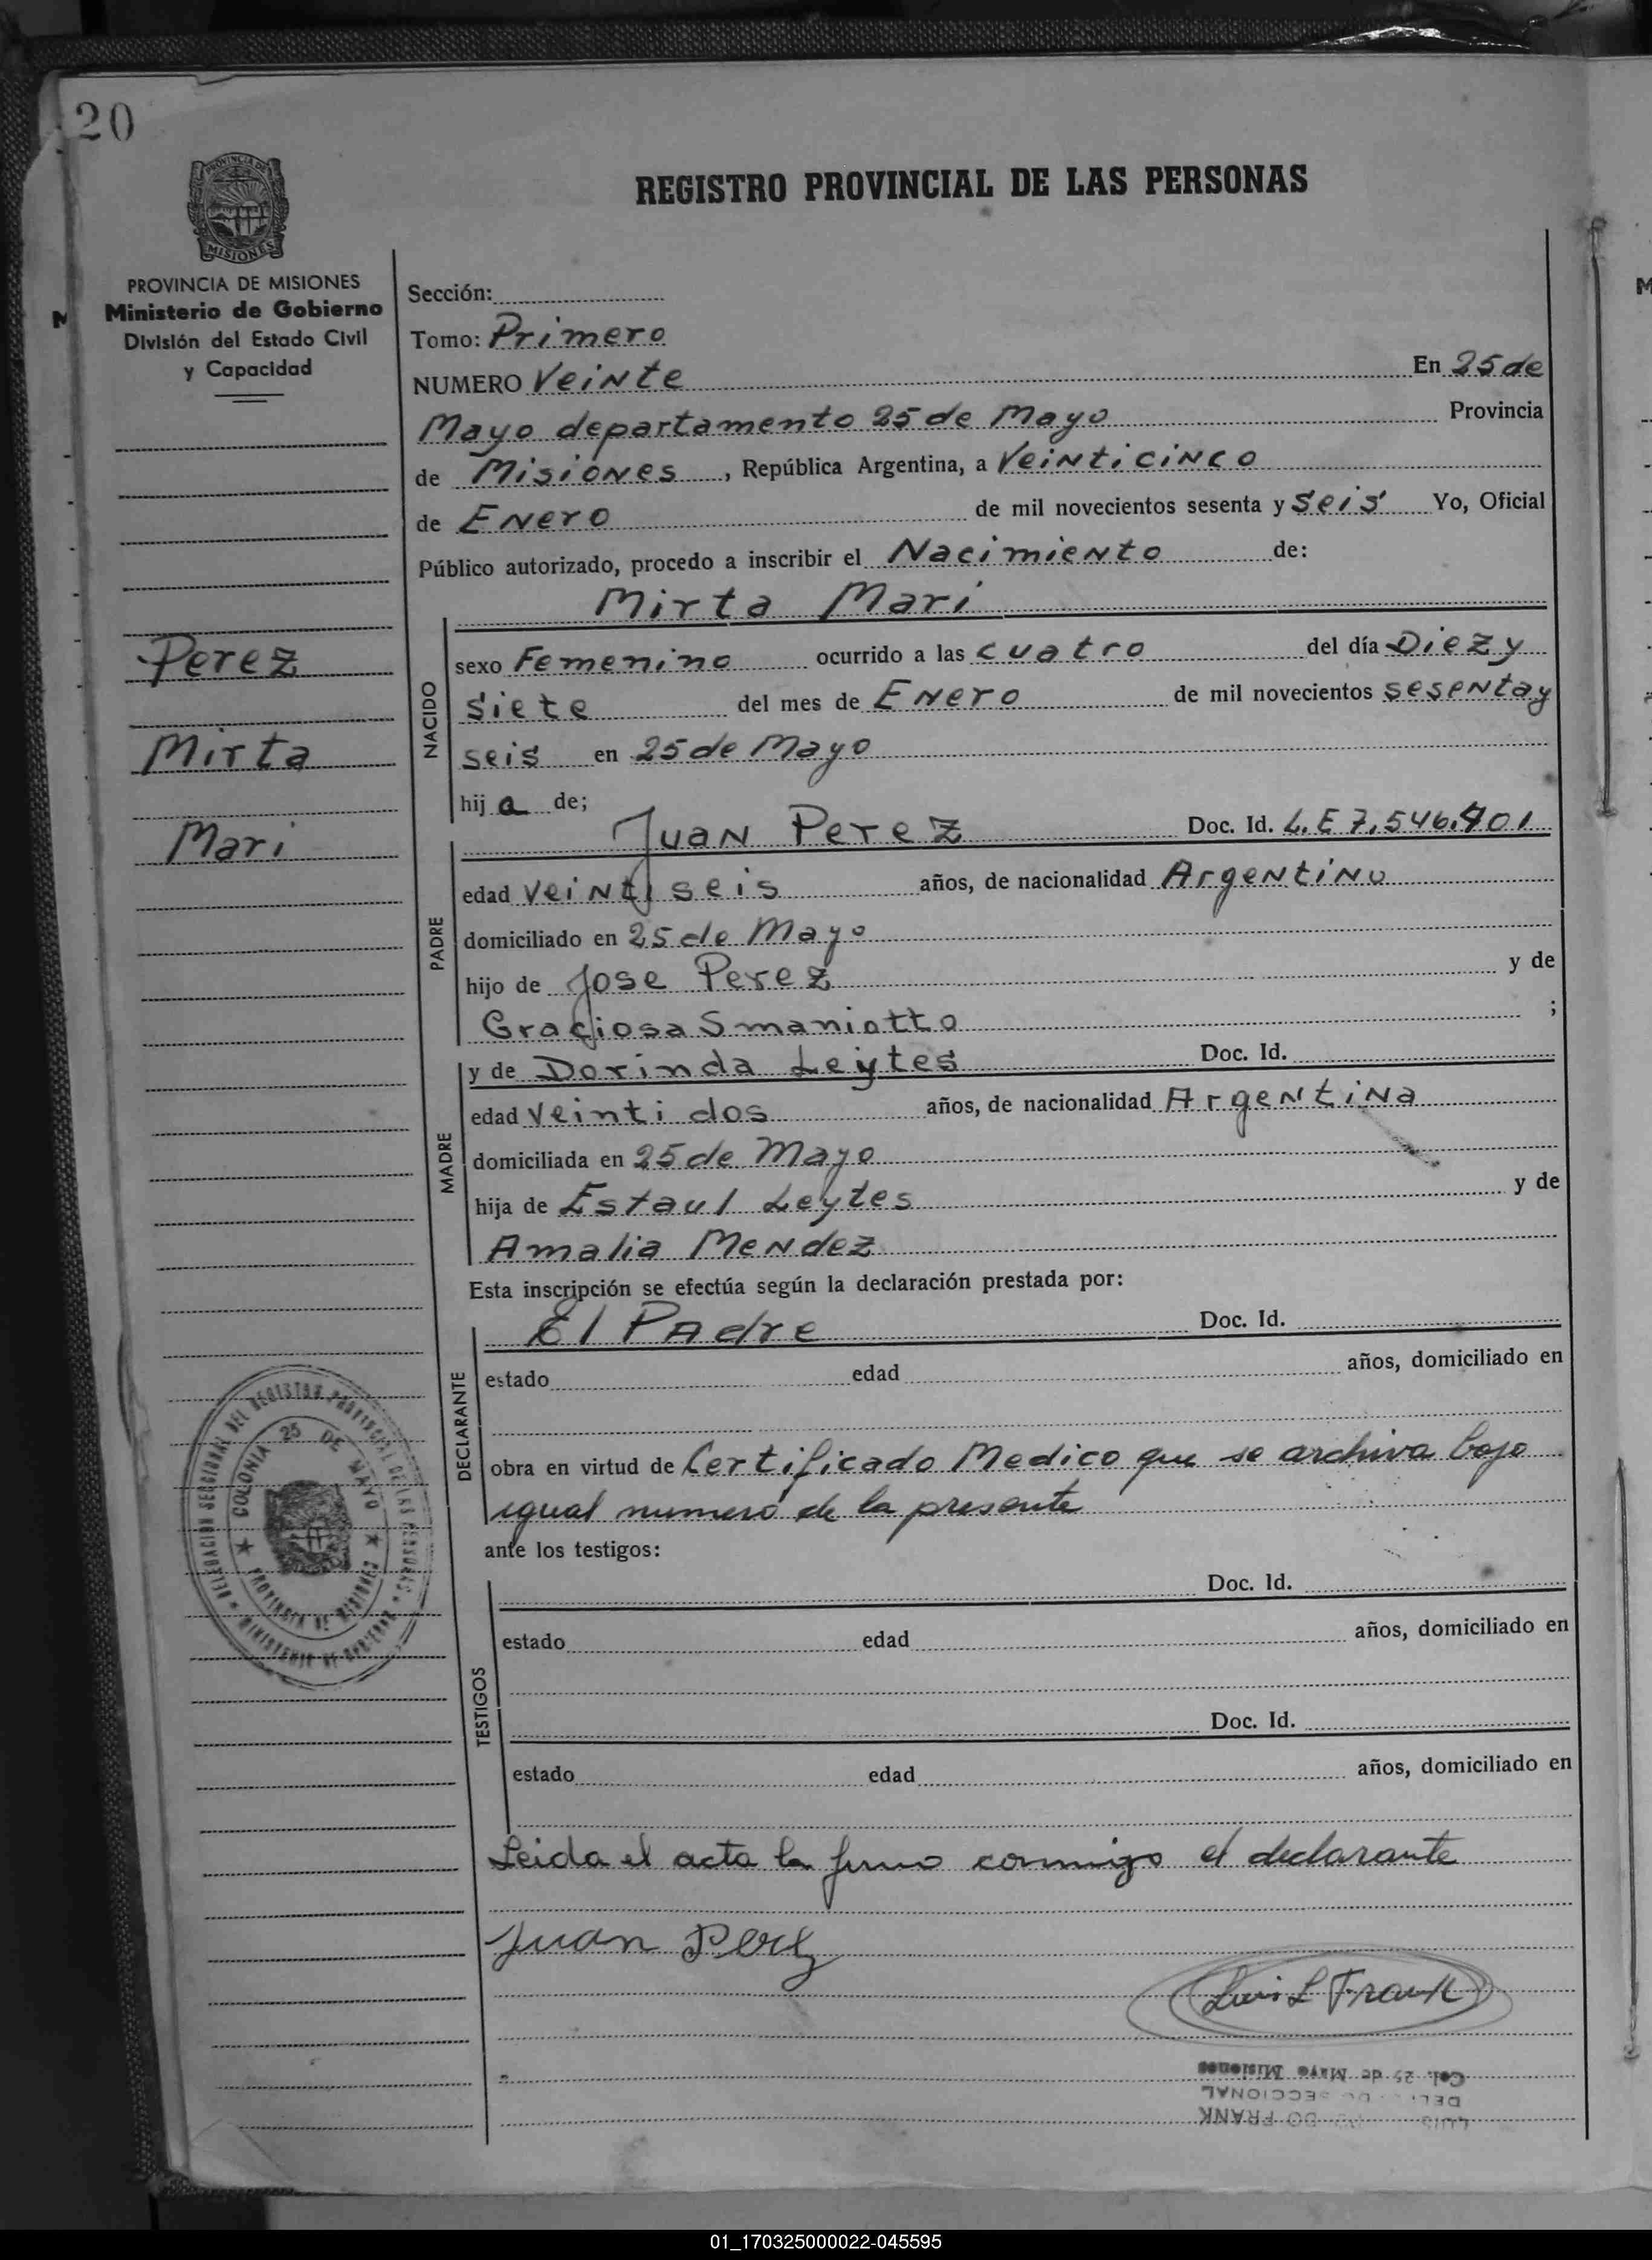 20
PROVINCIA DE
MISIONES
REGISTRO PROVINCIAL DE LAS PERSONAS
PROVINCIA DE MISIONES
Ministerio de Gobierno
División del Estado Civil
y Capacidad
Perez
Mirta
Mari
Sección:
Tomo: Primero
NUMERO Veinte En 25 de
Mayo departamento 25 de Mayo Provincia
de Misiones, República Argentina, a Veinticinco
de Enero de mil novecientos sesenta y seis Yo, Oficial
Público autorizado, procedo a inscribir el Nacimiento de:
Mirta Mari
NACIDO
sexo Femenino ocurrido a las cuatro del día Diez y
siete del mes de Enero de mil novecientos sesenta y
seis en 25 de Mayo
hija de;
Juan Perez Doc. Id. L.E 7.546.701
PADRE
edad Veinti seis años, de nacionalidad Argentino
domiciliado en 25 de Mayo
hijo de Jose Perez y de
Graciosa Smaniotto ;
y de Dorinda Leytes Doc. Id.
MADRE
edad Veinti dos años, de nacionalidad Argentina
domiciliada en 25 de Mayo
hija de Estaul Leytes y de
Amalia Mendez
Esta inscripción se efectúa según la declaración prestada por:
El Padre Doc. Id.
DECLARANTE
estado edad años, domiciliado en
obra en virtud de Certificado Medico que se archiva bajo
igual numero de la presente
ante los testigos:
Doc. Id.
TESTIGOS
estado edad años, domiciliado en
Doc. Id.
estado edad años, domiciliado en
Leida el acta la firmo conmigo el declarante
Juan Perez
Luis L Frank
Col. 25 de Mayo Misiones
SECCIONAL
LUIS DO FRANK
DELEGACION SECCIONAL DEL REGISTRO PROVINCIAL DE LAS PERSONAS
MINISTERIO DE GOBIERNO
COLONIA 25 DE MAYO
PROVINCIA DE MISIONES
01_170325000022-045595